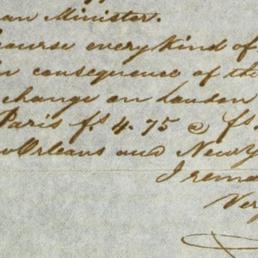 an Minister.
course every kind of
in consequence of the
change on London
Paris fs. 4.75 @ fs.
Orleans and New Y
I rema
Ver